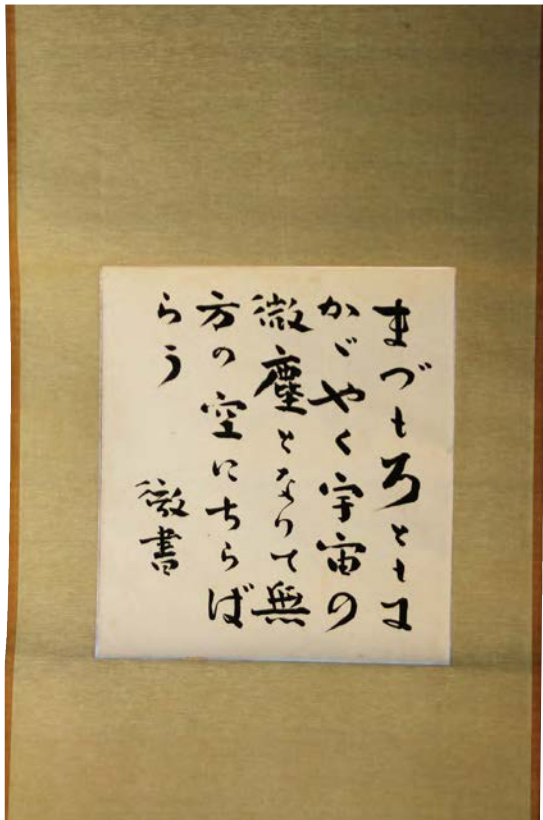 まづもろともに
かゞやく宇宙の
微塵となりて無
方の空にちらば
らう
徴書